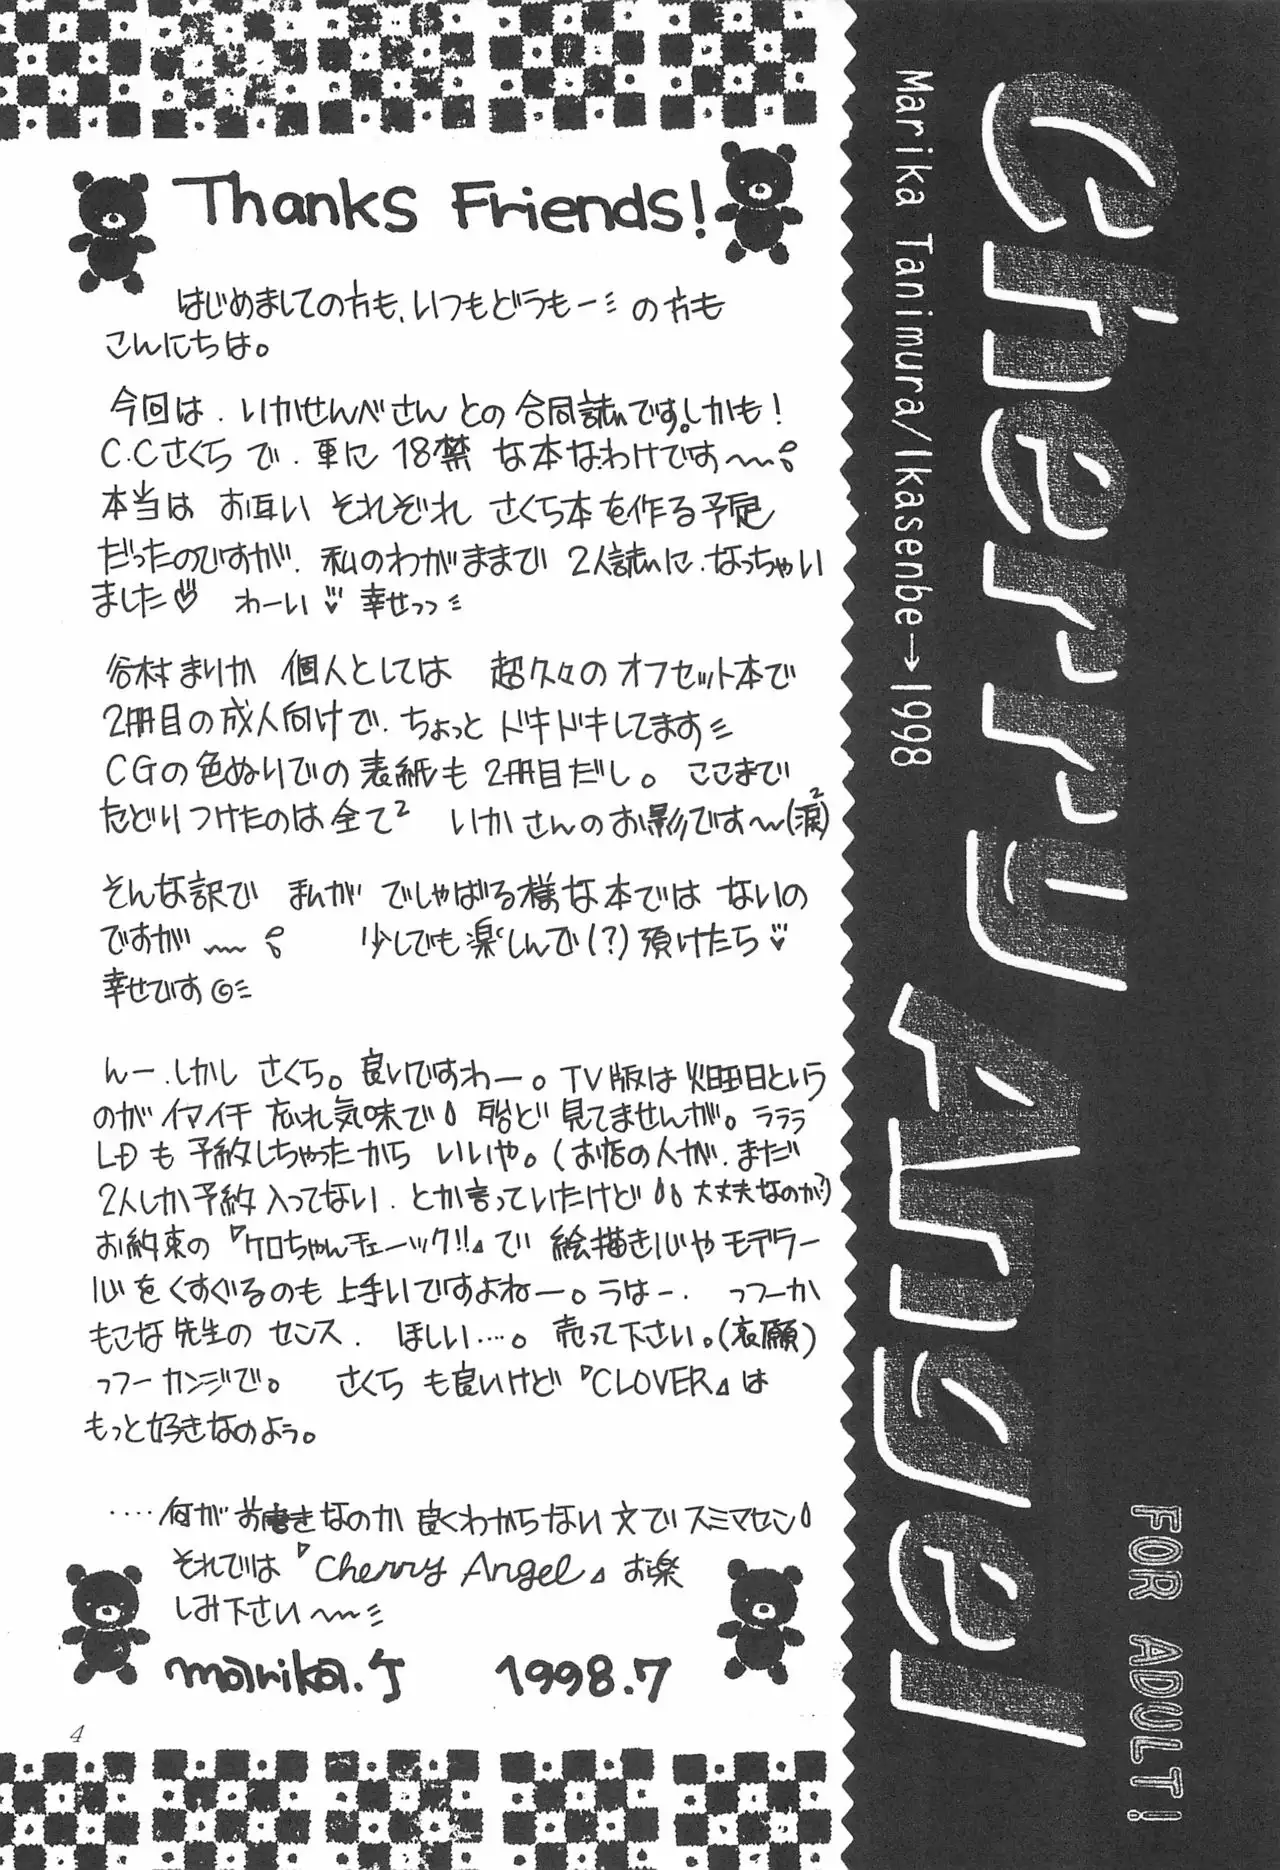 Thanks Friends!
はじめましての方も、いつもどうもーの方も
こんにちは。
今回は、いかせんべさんとの合同誌です。しかも!
C.Cさくらで、更に18禁な本なわけです〜
本当はお互いそれぞれさくら本を作る予定
だったのですが、私のわがままで2人誌に、なっちゃい
ました♡ わーい♡ 幸せっっ
谷村まりか個人としては超久々のオフセット本で
2冊目の成人向けで、ちょっとドキドキしてます
CGの色ぬりでの表紙も2冊目だし。ここまで
たどりつけたのは全て² いかさんのお影です〜(涙)²
そんな訳でまんがでしゃばる様な本ではないの
ですが〜 少しでも楽しんで(?)頂けたら♡
幸せです
んー、しかしさくら。良いですわー。TV版は火曜日という
のがイマイチ忘れ気味で殆ど見てませんが。ラララ
LDも予約しちゃったからいいや。(お店の人が、まだ
2人しか予約入ってない、とか言っていたけど 大丈夫なのか?)
お約束の『ケロちゃんチェーック!!』で絵描き心やモデラー
心をくすぐるのも上手いですよねー。うはー、っつーか
もこな先生のセンス、ほしい…。売って下さい。(哀願)
っつーカンジで。 さくらも良いけど『CLOVER』は
もっと好きなのよう。
‥‥何がお書きなのか良くわからない文でスミマセン
それでは『Cherry Angel』お楽
しみ下さい〜
marika.t 1998.7
4
Cherry Angel
Marika Tanimura/Ikasenbe→1998
FOR ADULT!